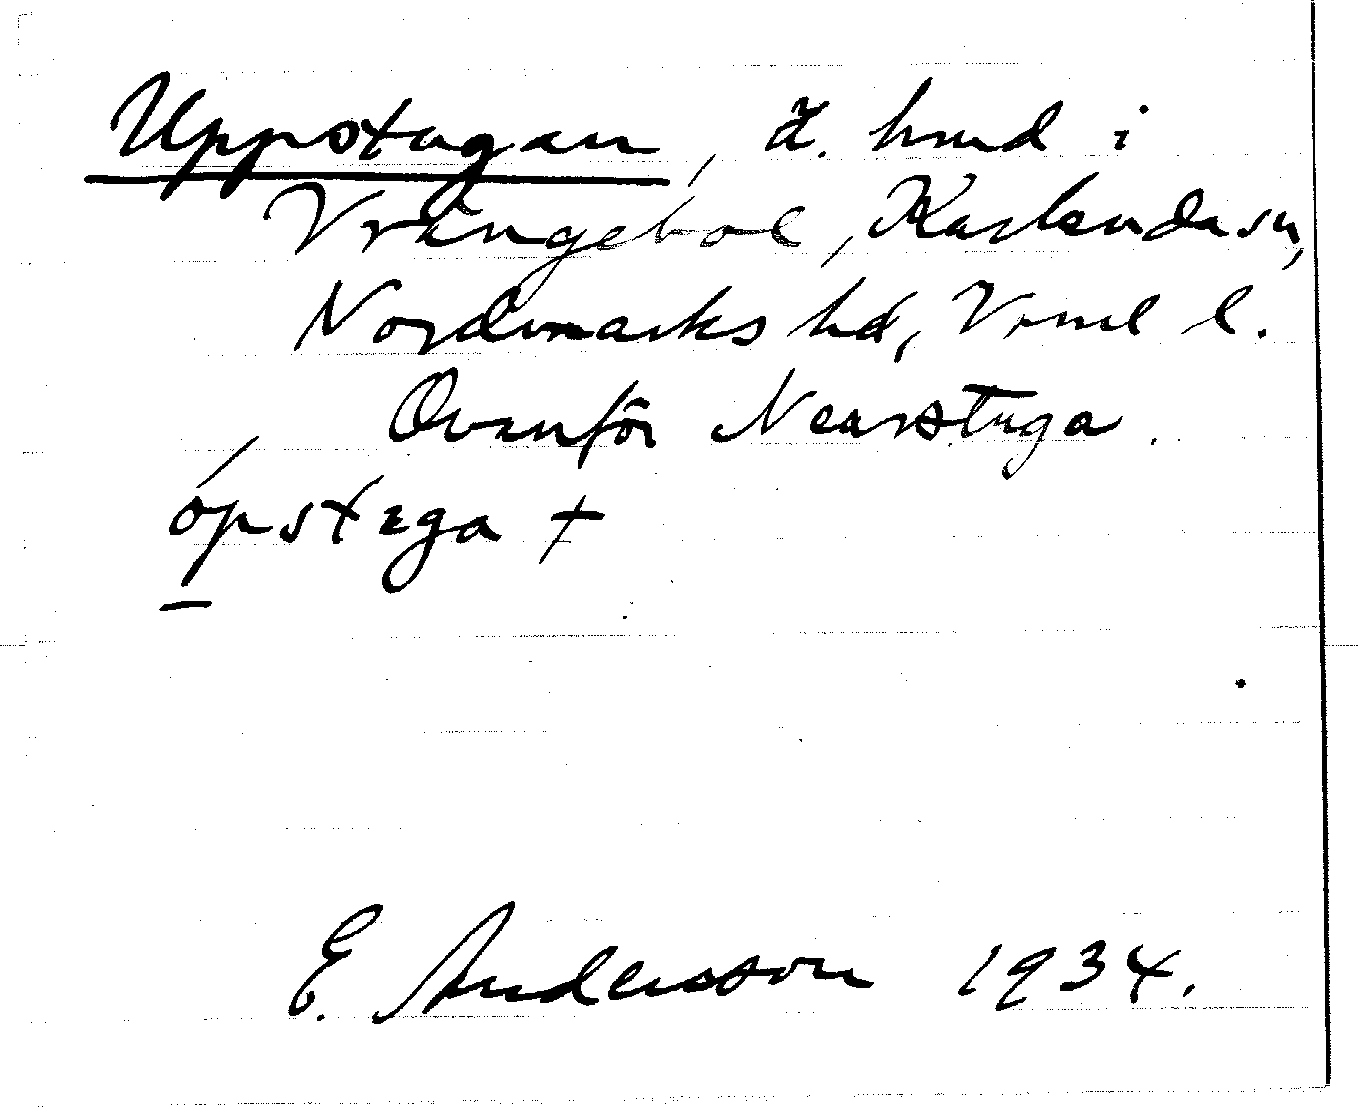 Uppstugan, ä. hmd i
Vrängebol, Karlanda sn,
Nordmarks hd, Vrml l.
Ovanför Nearstuga.
ópstega +
E. Andersson 1934.